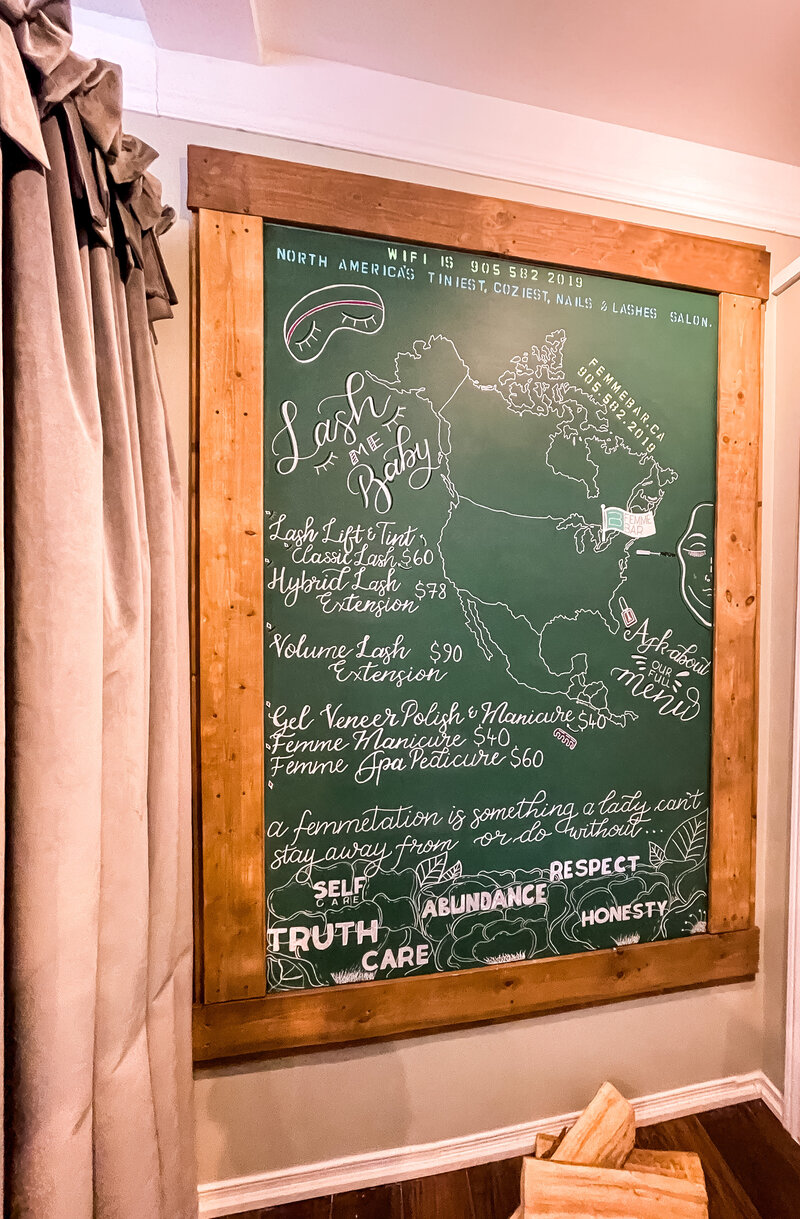 WIFI IS 905 582 2019
NORTH AMERICA'S TINIEST, COZIEST, NAILS & LASHES SALON.
FEMMEBAR.CA
905.582.2019
Lash
ME
Baby
B FEMME
BAR
Lash Lift & Tint
Classic Lash $60
Hybrid Lash $78
Extension
Volume Lash $90
Extension
Ask about
OUR
FULL
menu
Gel Veneer Polish & Manicure $40
Femme Manicure $40
Femme Spa Pedicure $60
a femmetation is something a lady can't
stay away from or do without...
SELF
CARE
ABUNDANCE
RESPECT
TRUTH
CARE
HONESTY